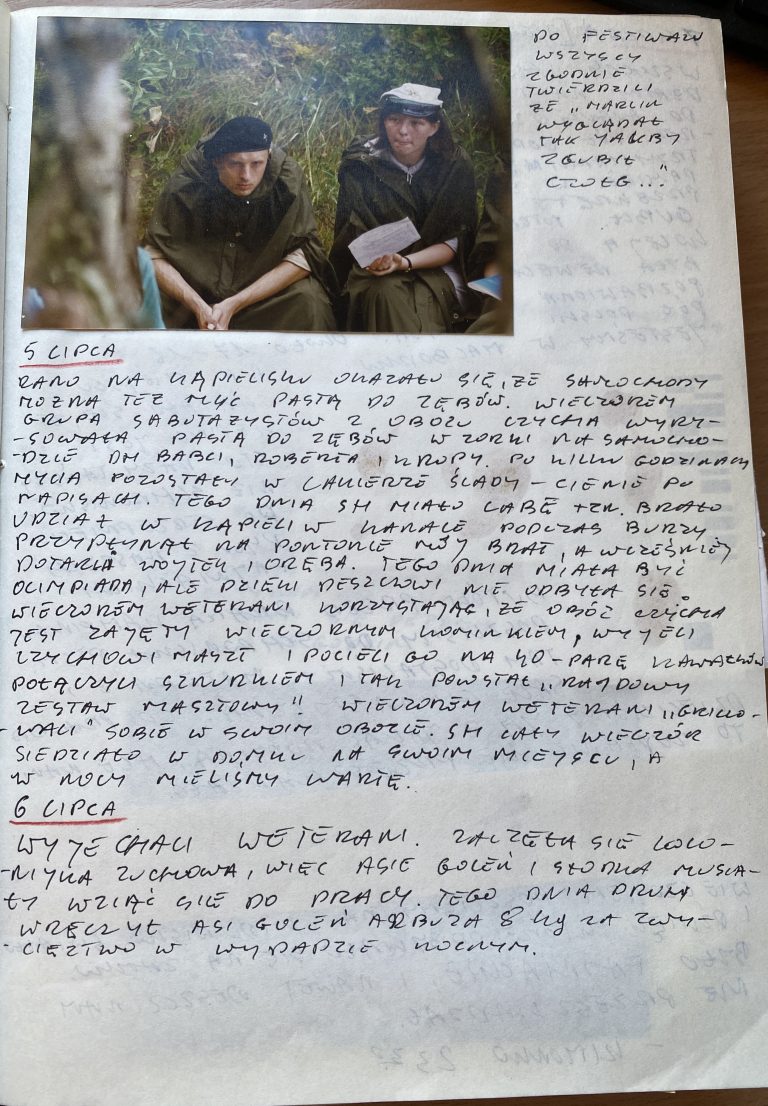 DO FESTIWALU
WSZYSCY
ZGODNIE
TWIERDZILI
ŻE „MARCIN
WYGLĄDAŁ
TAK JAKBY
ZGUBIŁ
CZOŁG..."
5 LIPCA
RANO NA KĄPIELISKU OKAZAŁO SIĘ, ŻE SAMOCHODY
MOŻNA TEŻ MYĆ PASTĄ DO ZĘBÓW. WIECZOREM
GRUPA SABOTAŻYSTÓW Z OBOZU CZYCHA WYRY-
-SOWAŁA PASTĄ DO ZĘBÓW WZORKI NA SAMOCHO-
-DZIE DH BABCI, ROBERTA I KROPY. PO KILKU GODZINACH
MYCIA POZOSTAŁY W LAKIERZE ŚLADY - CIENIE PO
NAPISACH. TEGO DNIA SH MIAŁO LABĘ TZN. BRAŁO
UDZIAŁ W KĄPIELI W KANALE PODCZAS BURZY
PRZYPŁYNĄŁ NA PONTONIE MÓJ BRAT, A WCZEŚNIEJ
DOTARLI WOJTEK I ORĘBA. TEGO DNIA MIAŁA BYĆ
OLIMPIADA, ALE DZIĘKI DESZCZOWI NIE ODBYŁA SIĘ.
WIECZOREM WETERANI KORZYSTAJĄC, ŻE OBÓZ CZYCHA
JEST ZAJĘTY WIECZORNYM KOMINKIEM, WYJĘLI
CZYCHOWI MASZT I POCIĘLI GO NA 40-PARĘ KAWAŁKÓW
POŁĄCZYLI SZNURKIEM I TAK POWSTAŁ „RAJDOWY
ZESTAW MASZTOWY". WIECZOREM WETERANI „GRILLO-
-WALI" SOBIE W SWOIM OBOZIE. SH CAŁY WIECZÓR
SIEDZIAŁO W DOMKU NA SWOIM MIEJSCU, A
W NOCY MIELIŚMY WARTĘ.
6 LIPCA
WYJECHALI WETERANI. ZACZĘŁA SIĘ KOLO-
-NIJKA ZUCHOWA, WIĘC ASIE GOLEŃ I SŁODKA MUSIA-
-ŁY WZIĄĆ SIĘ DO PRACY. TEGO DNIA DRUH
WRĘCZYŁ ASI GOLEŃ ARBUZA 8 kg ZA ZWY-
-CIĘZTWO W WYPADZIE NOCNYM.